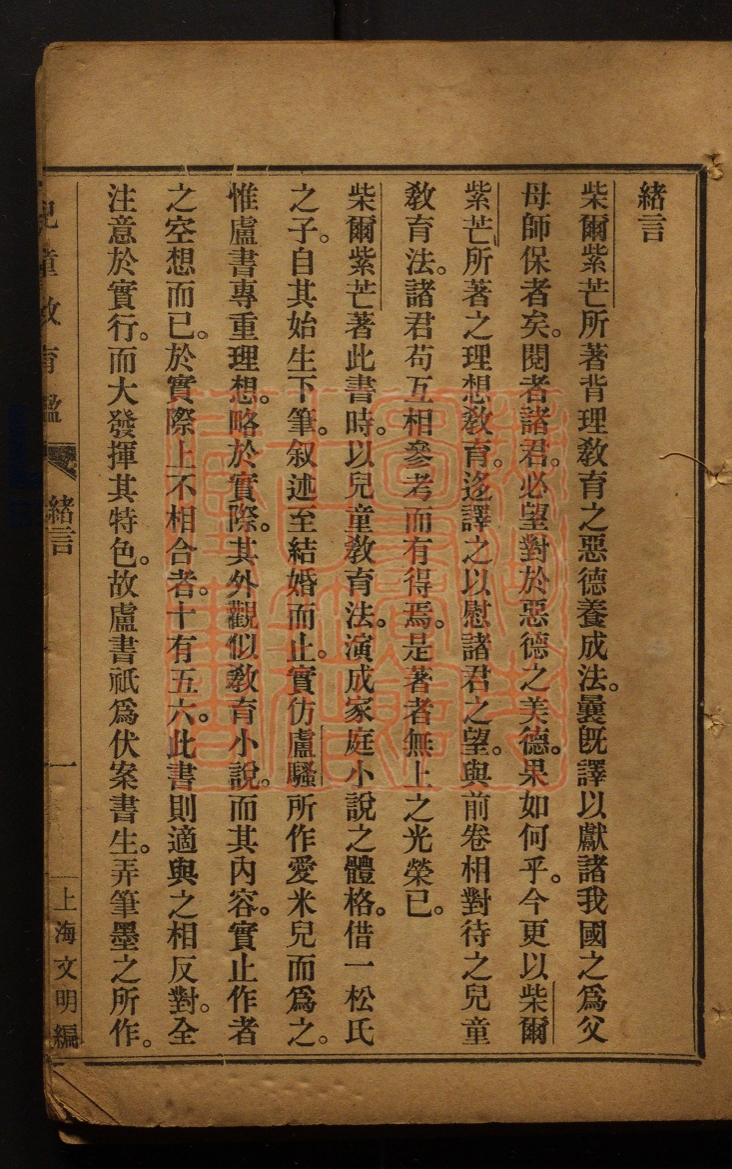 緒言
柴爾紫芒所著背理教育之惡德養成法。曩旣譯以獻諸我國之爲父
母師保者矣。閱者諸君。必望對於惡德之美德。果如何乎。今更以柴爾
紫芒所著之理想教育。迻譯之以慰諸君之望。與前卷相對待之兒童
教育法。諸君苟互相參考而有得焉。是著者無上之光榮已。
柴爾紫芒著此書時。以兒童教育法。演成家庭小說之體格。借一松氏
之子。自其始生下筆。叙述至結婚而止。實仿盧騷所作愛米兒而爲之。
惟盧書專重理想。略於實際。其外觀似教育小說。而其內容。實止作者
之空想而已。於實際上不相合者。十有五六。此書則適與之相反對。全
注意於實行。而大發揮其特色。故盧書祇爲伏案書生。弄筆墨之所作。
兒童教育鑑 緒言 一 上海文明編